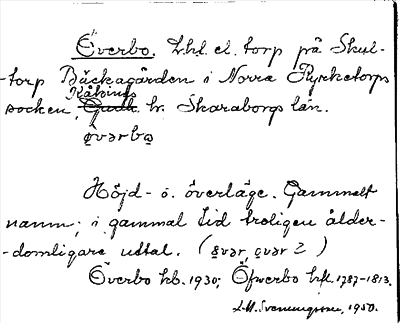 Överbo. Lht. el. torp på Skul-
-torp Bäckagården i Norra Kyrketorps
Kåkinds
socken, Gudh. hr. Skaraborgs län.
ø̨vərbɷ
Höjd- o. överläge. Gammalt
namn; i gammal tid troligen ålder-
-domligare uttal. (øvər, ovər ? )
Överbo hb. 1930; Öfwerbo hfl. 1787-1813.
L.M. Svenungsson, 1950.